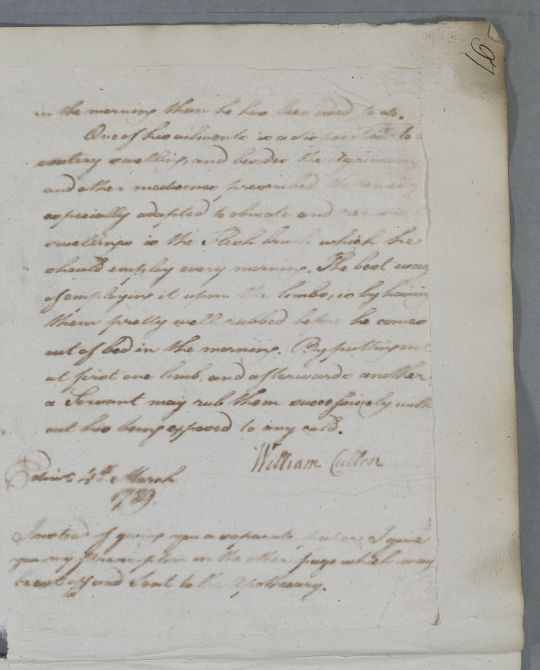 16
in the morning than he has been used to do.
One of his ailments is a disposition to
watery swelling, and besides the Agrimony
and other medicines prescribed the remedy
especially adapted to obviate and remove
swellings is the Flesh brush which he
should employ every morning. The best way
of employing it upon the limbs, is by having
them pretty well rubbed before he comes
out of bed in the morning. By putting out
at first one limb, and afterwards another
a Servant may rub them successively with
out his being exposed to any cold.
William Cullen
Edinr. 4th. March
1789.
Instead of giving you a separate paper, I give
you my prescription on the other page which may
be cut off and sent to the Apothecary.